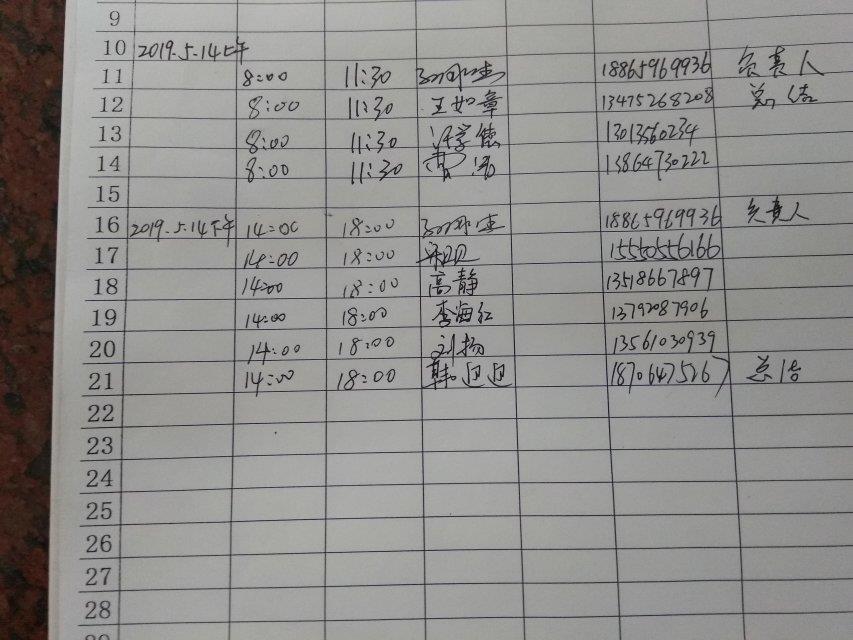 9
10 2019.5.14上午
11 8:00 11:30 18865969936 负责人
12 8:00 11:30 王如章 13475268208 总结
13 8:00 11:30 13013560234
14 8:00 11:30 13864730222
15
16 2019.5.14下午 14:00 18:00 18865969936 负责人
17 14:00 18:00 15550556166
18 14:00 18:00 高静 13518667897
19 14:00 18:00 李海红 13792087906
20 14:00 18:00 刘扬 13561030939
21 14:00 18:00 韩迎迎 18706475267 总结
22
23
24
25
26
27
28